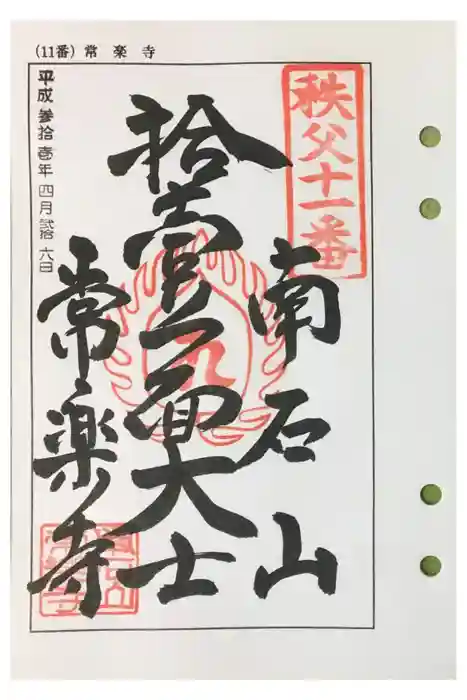 （11番）常 楽 寺
秩父十一番
南石山
拾壱面大士
常楽寺
平成 参拾壱年 四月 弐拾六日